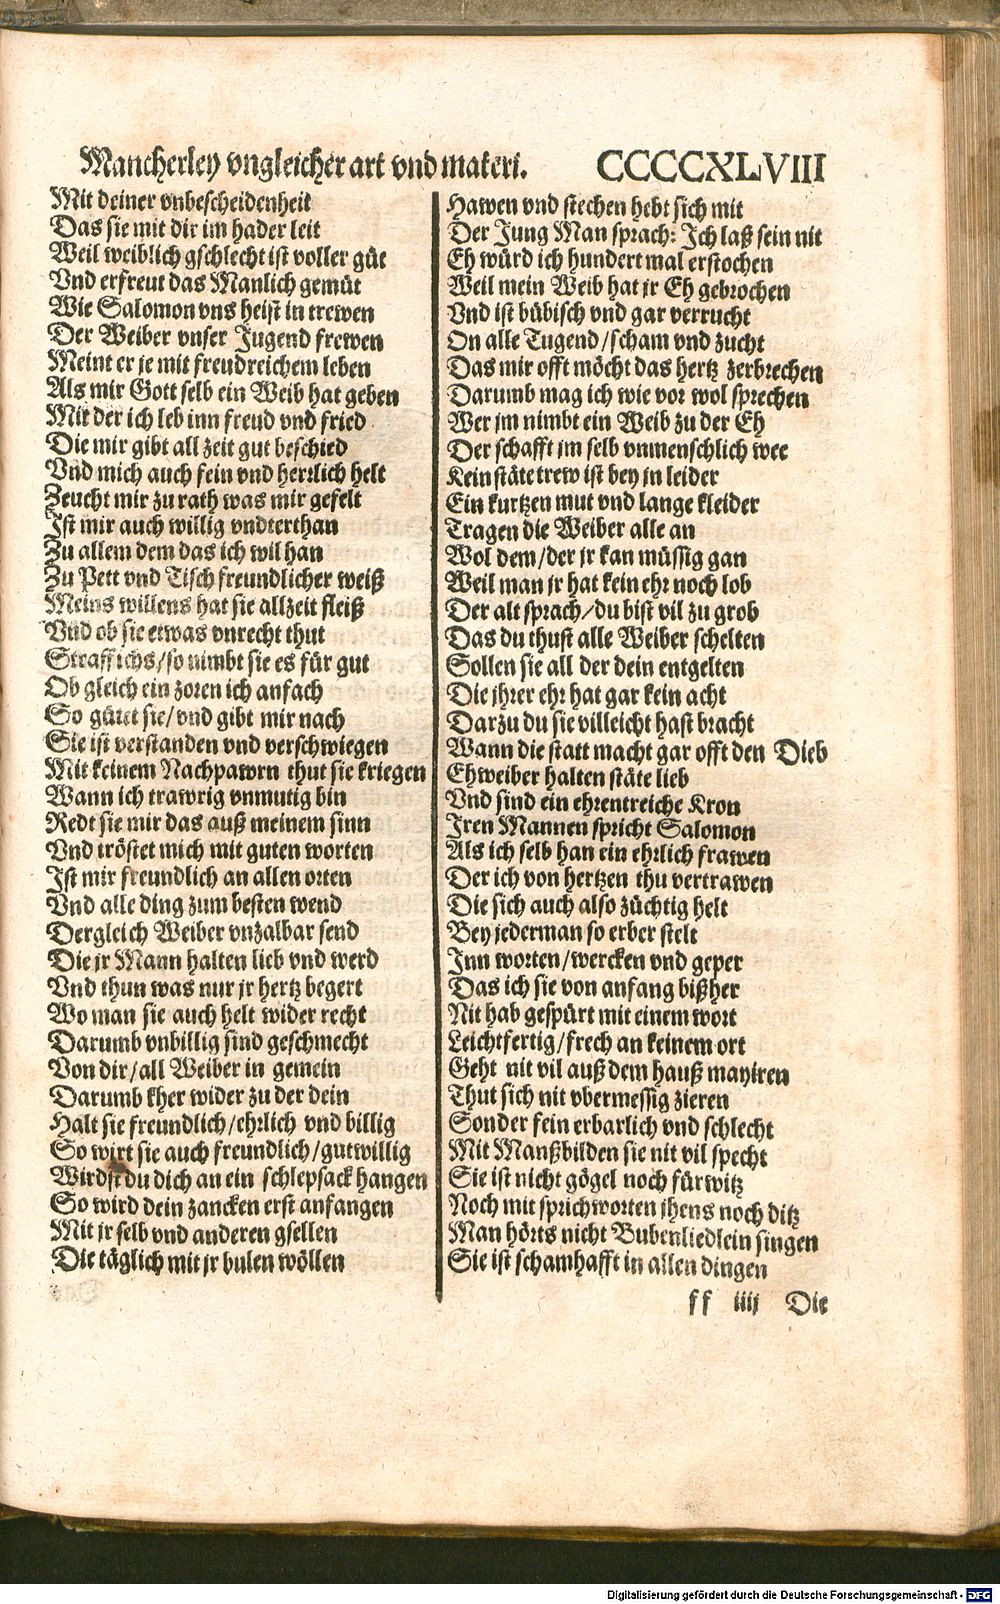 Mancherley vngleicher art vnd materi. CCCCXLVIII
Mit deiner vnbescheidenheit
Das sie mit dir im hader leit
Weil weiblich gschlecht ist voller güt
Vnd erfreut das Manlich gemüt
Wie Salomon vns heist in trewen
Der Weiber vnser Jugend frewen
Meint er je mit freudreichem leben
Als mir Gott selb ein Weib hat geben
Mit der ich leb inn freud vnd fried
Die mir gibt all zeit gut beschied
Vnd mich auch fein vnd hertzlich helt
Zeucht mir zu rath was mir gefelt
Ist mir auch willig vndterthan
Zu allem dem das ich wil han
Zu Pett vnd Tisch freundlicher weiß
Meins willens hat sie allzeit fleiß
Vnd ob sie etwas vnrecht thut
Straff ichs/so nimbt sie es für gut
Ob gleich ein zoren ich anfach
So güret sie/vnd gibt mir nach
Sie ist verstanden vnd verschwiegen
Mit keinem Nachpawrn thut sie kriegen
Wann ich trawrig vnmutig bin
Redt sie mir das auß meinem sinn
Vnd tröstet mich mit guten worten
Ist mir freundlich an allen orten
Vnd alle ding zum besten wend
Dergleich Weiber vnzalbar send
Die jr Mann halten lieb vnd werd
Vnd thun was nur jr hertz begert
Wo man sie auch helt wider recht
Darumb vnbillig sind geschmecht
Von dir/all Weiber in gemein
Darumb kher wider zu der dein
Halt sie freundlich/ehrlich vnd billig
So wirt sie auch freundlich/gutwillig
Wirdst du dich an ein schlepsack hangen
So wird dein zancken erst anfangen
Mit jr selb vnd anderen gsellen
Die täglich mit jr bulen wöllen
Hawen vnd stechen hebt sich mit
Der Jung Man sprach: Ich laß sein nit
Eh würd ich hundert mal erstochen
Weil mein Weib hat jr Eh gebrochen
Vnd ist bübisch vnd gar verrucht
On alle Tugend/scham vnd zucht
Das mir offt möcht das hertz zerbrechen
Darumb mag ich wie vor wol sprechen
Wer jm nimbt ein Weib zu der Eh
Der schafft im selb vnmenschlich wee
Kein stäte trew ist bey jn leider
Ein kurtzen mut vnd lange kleider
Tragen die Weiber alle an
Wol dem/der jr kan müssig gan
Weil man jr hat kein ehr noch lob
Der alt sprach/du bist vil zu grob
Das du thust alle Weiber schelten
Sollen sie all der dein entgelten
Die jhrer ehr hat gar kein acht
Darzu du sie villeicht hast bracht
Wann die statt macht gar offt den Dieb
Ehweiber halten stäte lieb
Vnd sind ein ehrentreiche Kron
Iren Mannen spricht Salomon
Als ich selb han ein ehrlich frawen
Der ich von hertzen thu vertrawen
Die sich auch also züchtig helt
Bey jederman so erber stelt
Inn worten/wercken vnd geper
Das ich sie von anfang bißher
Nit hab gespürt mit einem wort
Leichtfertig/frech an keinem ort
Geht nit vil auß dem hauß mayiren
Thut sich nit vbermessig zieren
Sonder fein erbarlich vnd schlecht
Mit Manßbilden sie nit vil specht
Sie ist nicht gögel noch fürwitz
Noch mit sprichworten jhens noch ditz
Man hörts nicht Bubenliedlein singen
Sie ist schamhafft in allen dingen
ff iiij Die
Digitalisierung gefördert durch die Deutsche Forschungsgemeinschaft - DFG